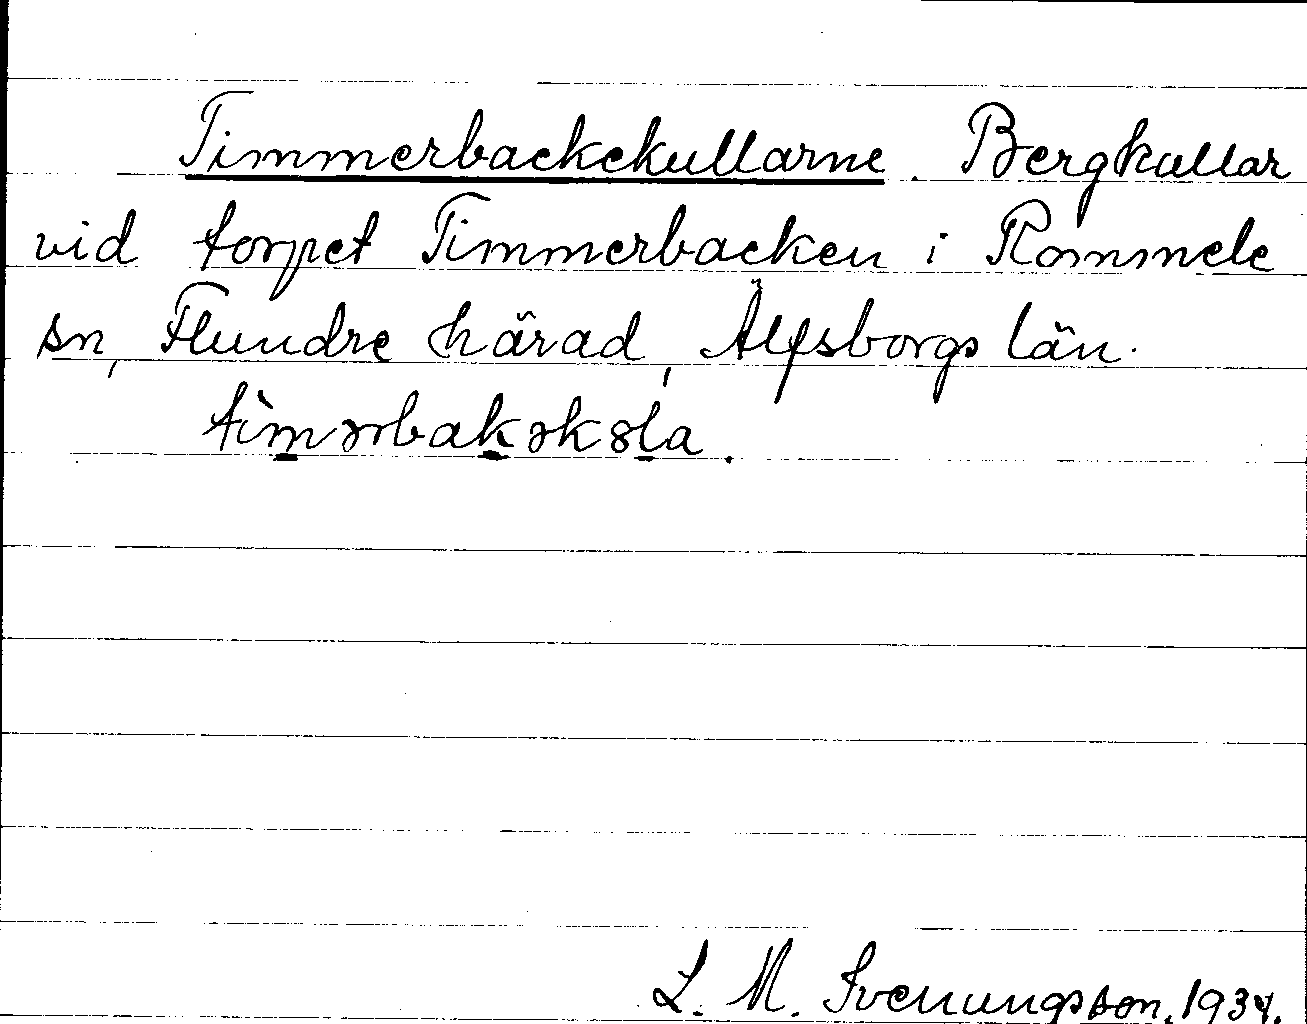 Timmerbackekullarne. Bergkullar
vid torpet Timmerbacken i Rommele
sn, Flundre härad, Älfsborgs län.
tìmərbakəkɞla.
L. M. Svenungsson. 1934.